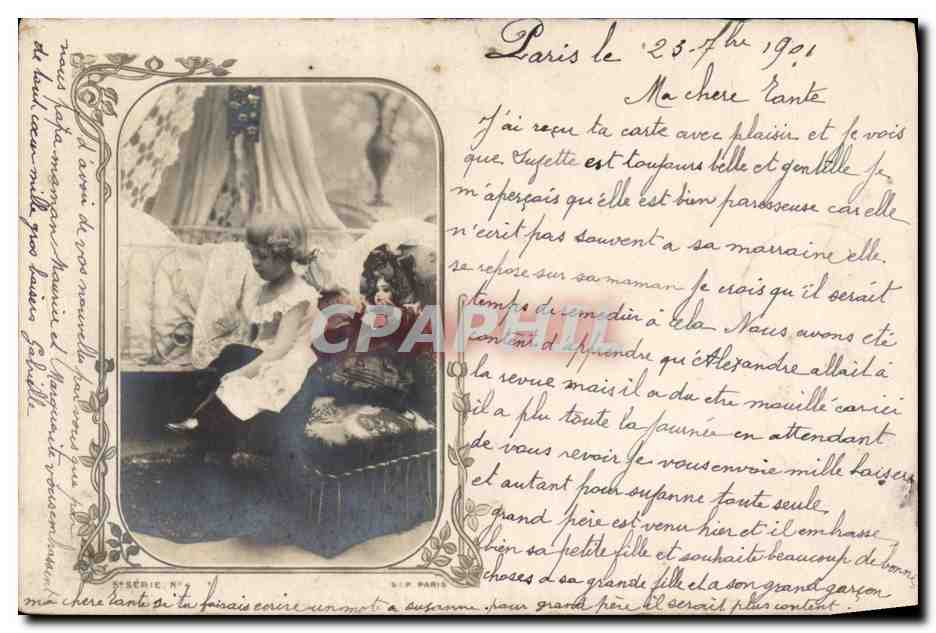 Paris le 23 7bre 1901
Ma chere Tante
J'ai reçu ta carte avec plaisir et je vois
que Suzette est toujours belle et gentille je
m'aperçois qu'elle est bien paresseuse car elle
n'ecrit pas souvent a sa marraine elle
se repose sur sa maman je crois qu'il serait
temps de remedier à cela Nous avons été
content d'apprendre qu'Alexandre allait à
la revue mais il a du etre mouillé car ici
il a plu toute la journée en attendant
de vous revoir je vous envoie mille baisers
et autant pour suzanne toute seule
grand père est venu hier et il embrasse
bien sa petite fille et souhaite beaucoup de bonne
choses a sa grande fille et a son grand garçon
ma chere Tante si tu faisais ecrire un mot a suzanne pour grand père il serait plus content.
d'avoir de vos nouvelles pour vous que pour
nous papa maman Maurice et Marguerite vous embrassent
de tout cœur mille gros baisers Gabrielle
5e SÉRIE. No 4
S.I.P. PARIS
CPARHIL